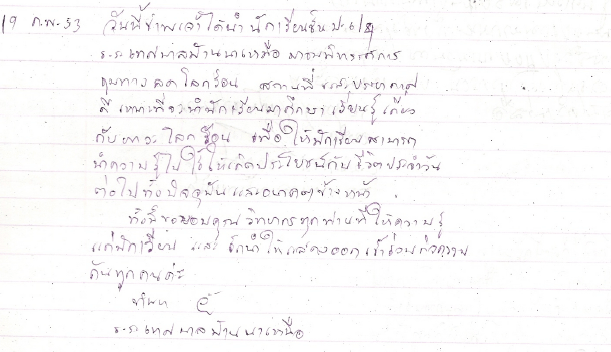 19 ก.พ. 53 วันนี้ข้าพเจ้าได้นำนักเรียนชั้น ป.6/
ร.ร.เทศบาลบ้านนาเหนือ มาชมนิทรรศการ
ลดโลกร้อน สถานที่ และบรรยากาศ
ดี เหมาะที่จะนำนักเรียนมาศึกษา เรียนรู้ เกี่ยว
กับภาวะโลกร้อน เพื่อให้นักเรียนสามารถ
นำความรู้ไปใช้ให้เกิดประโยชน์กับชีวิตประจำวัน
ต่อไปทั้งปัจจุบัน และอนาคตข้างหน้า
ทั้งนี้ขอขอบคุณวิทยากรทุกท่านที่ให้ความรู้
แก่นักเรียน และ ให้แสดงออก เข้าร่วม
กันทุกคนค่ะ
ร.ร.เทศบาลบ้านนาเหนือ